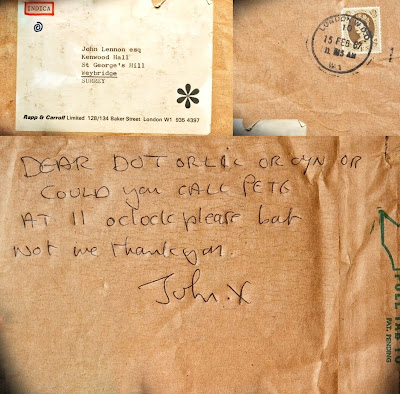 INDICA
John Lennon esq
Kenwood Hall
St George's Hill
Weybridge
SURREY
Rapp & Carroll Limited 128/134 Baker Street London W1 935 4397
LONDON
15 FEB 67
W.1
DEAR DOT OR LIL OR CYN OR
COULD you CALL PETE
AT 11 oclock please but
not me thankyou.
John. X
PULL TAB TO
PAT. PENDING